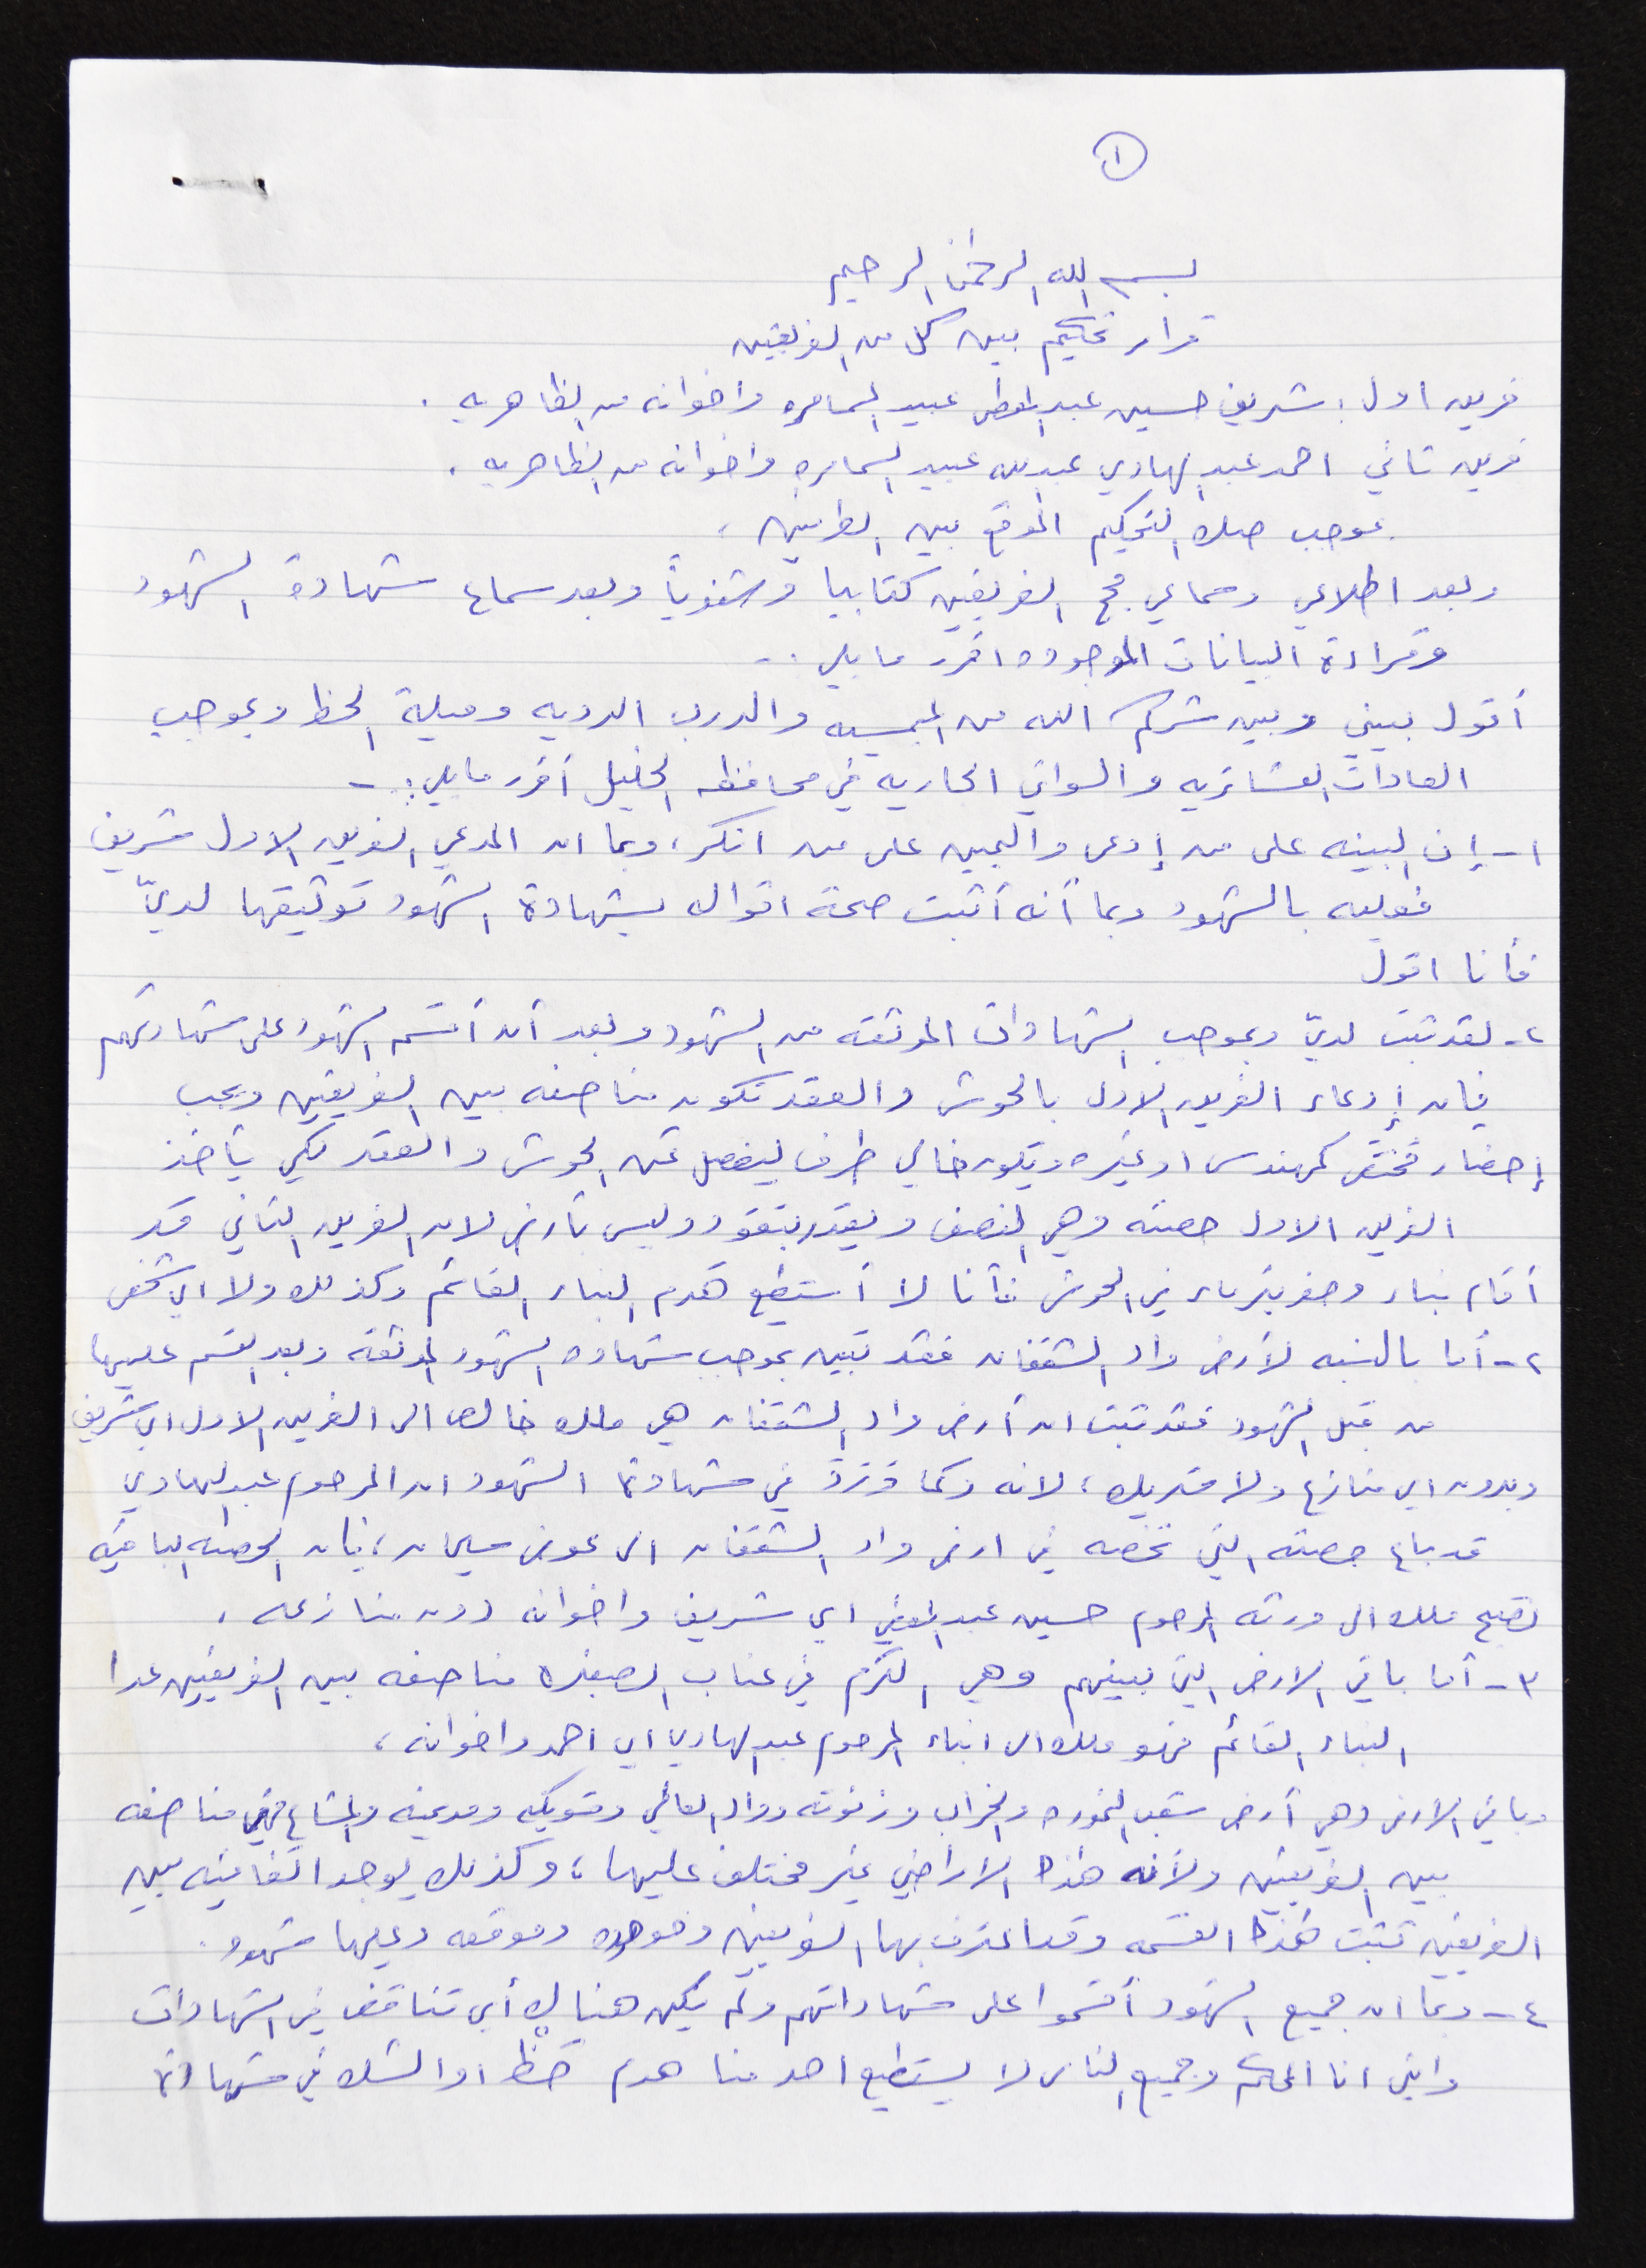 ١
بسم الله الرحمن الرحيم
قرار تحكيم بين كل من الفريقين
فريق اول : شريف حسين عبد المعطي عبيد السامره واخوانه من الظاهريه .
فريق ثاني احمد عبد الهادي عبدالله عبيد السامره واخوانه من الظاهريه .
بموجب صك التحكيم الموقع بين الطرفين ،
وبعد اطلاعي وسماعي حجج الفريقين كتابيا وشفوياً وبعد سماع شهادة الشهود
وقراءة البيانات الموجوده اقرر ما يلي :-
أقول بيني وبين شركم الله من والدرب الرديه وميلة الحظ وبموجب
العادات العشائريه والسواني الجاريه في محافظه الخليل أقرر ما يلي :-
١- إن البينه على من إدعى واليمين على من انكر، وبما ان المدعي الفريق الاول شريف
فعليه بالشهود وبما أنه أثبت صحة اقواله بشهادة الشهود توثيقها لديّ
فأنا اقول
٢- لقد ثبت لديّ وبموجب الشهادات الموثقه من الشهود وبعد أن أقسم الشهود على شهادتهم
فإن إدعاء الفريق الاول بالحوش والعقد تكون مناصفه بين الفريقين ويجب
إحضار مختص كمهندس او غيره ويكون خالي طرف ليفصل عن الحوش والعقد لكي يأخذ
الفريق الاول حصته وهي النصف ويقدر بنقود وليس بأرض لان الفريق الثاني قد
أقام بناء وحفر بئر ماء في الحوش فأنا لا أستطيع هدم البناء القائم وكذلك ولا اي شخص
٢- أما بالنسبه لأرض واد الشقفان فقد تبين بموجب شهاده الشهود الموثقه وبعد القسم عليها
من قبل الشهود فقد ثبت ان أرض واد الشقفان هي ملك خالص الى الفريق الاول اي شريف
وبدون اي منازع ولا شريك ، لانه وكما ورد في شهادة الشهود ان المرحوم عبد الهادي
قد باع حصته التي تخصه في ارض واد الشقفان الى عوض سليمان ، فإن الحصه الباقيه
تصبح ملك الى ورثه المرحوم حسين عبد المعطي اي شريف واخوانه دون منازعه .
٣- أما باقي الارض التي بينهم وهي الكرم في عناب الصغيره مناصفه بين الفريقين عدا
البناء القائم فهو ملك الى ابناء المرحوم عبد الهادي اي احمد واخوانه ،
وباقي الارض وهي أرض شعب النموره والخراب وزنوته وواد العالي وشويكه ومديمنه والمشاع فهي مناصفه
بين الفريقين ولأنه هذه الاراضي غير مختلف عليها ، وكذلك يوجد اتفاقيه بين
الفريقين تثبت هذه القسمه وقد اعترف بها الفريقين وموجوده وموقعه وعليها شهود .
٤- وبما ان جميع الشهود أقسموا على شهاداتهم ولم يكن هنالك أي تناقض في الشهادات
وانني انا المحكم وجميع الناس لا يستطيع احد منا هدم حظ او الشك في شهادة